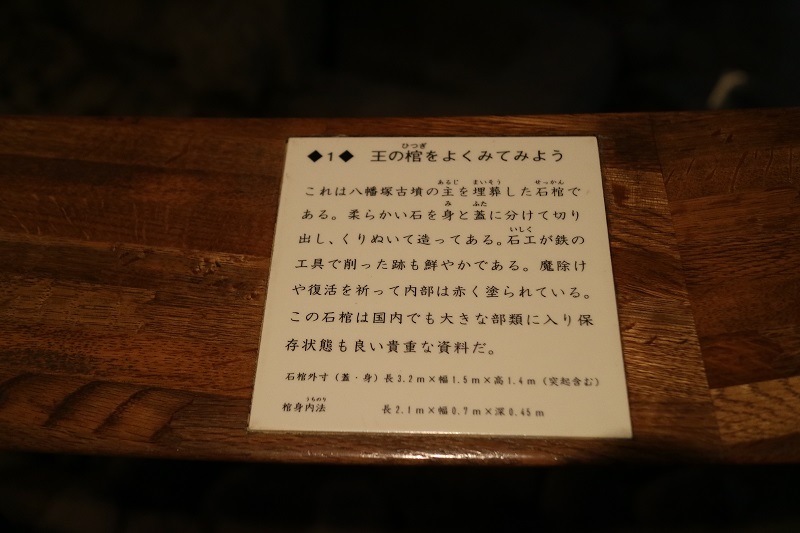 ◆1◆ 王の棺をよくみてみよう
これは八幡塚古墳の主を埋葬した石棺で
ある。柔らかい石を身と蓋に分けて切り
出し、くりぬいて造ってある。石工が鉄の
工具で削った跡も鮮やかである。魔除け
や復活を祈って内部は赤く塗られている。
この石棺は国内でも大きな部類に入り保
存状態も良い貴重な資料だ。
石棺外寸(蓋・身)長3.2m×幅1.5m×高1.4m(突起含む)
棺身内法 長2.1m×幅0.7m×深0.45m